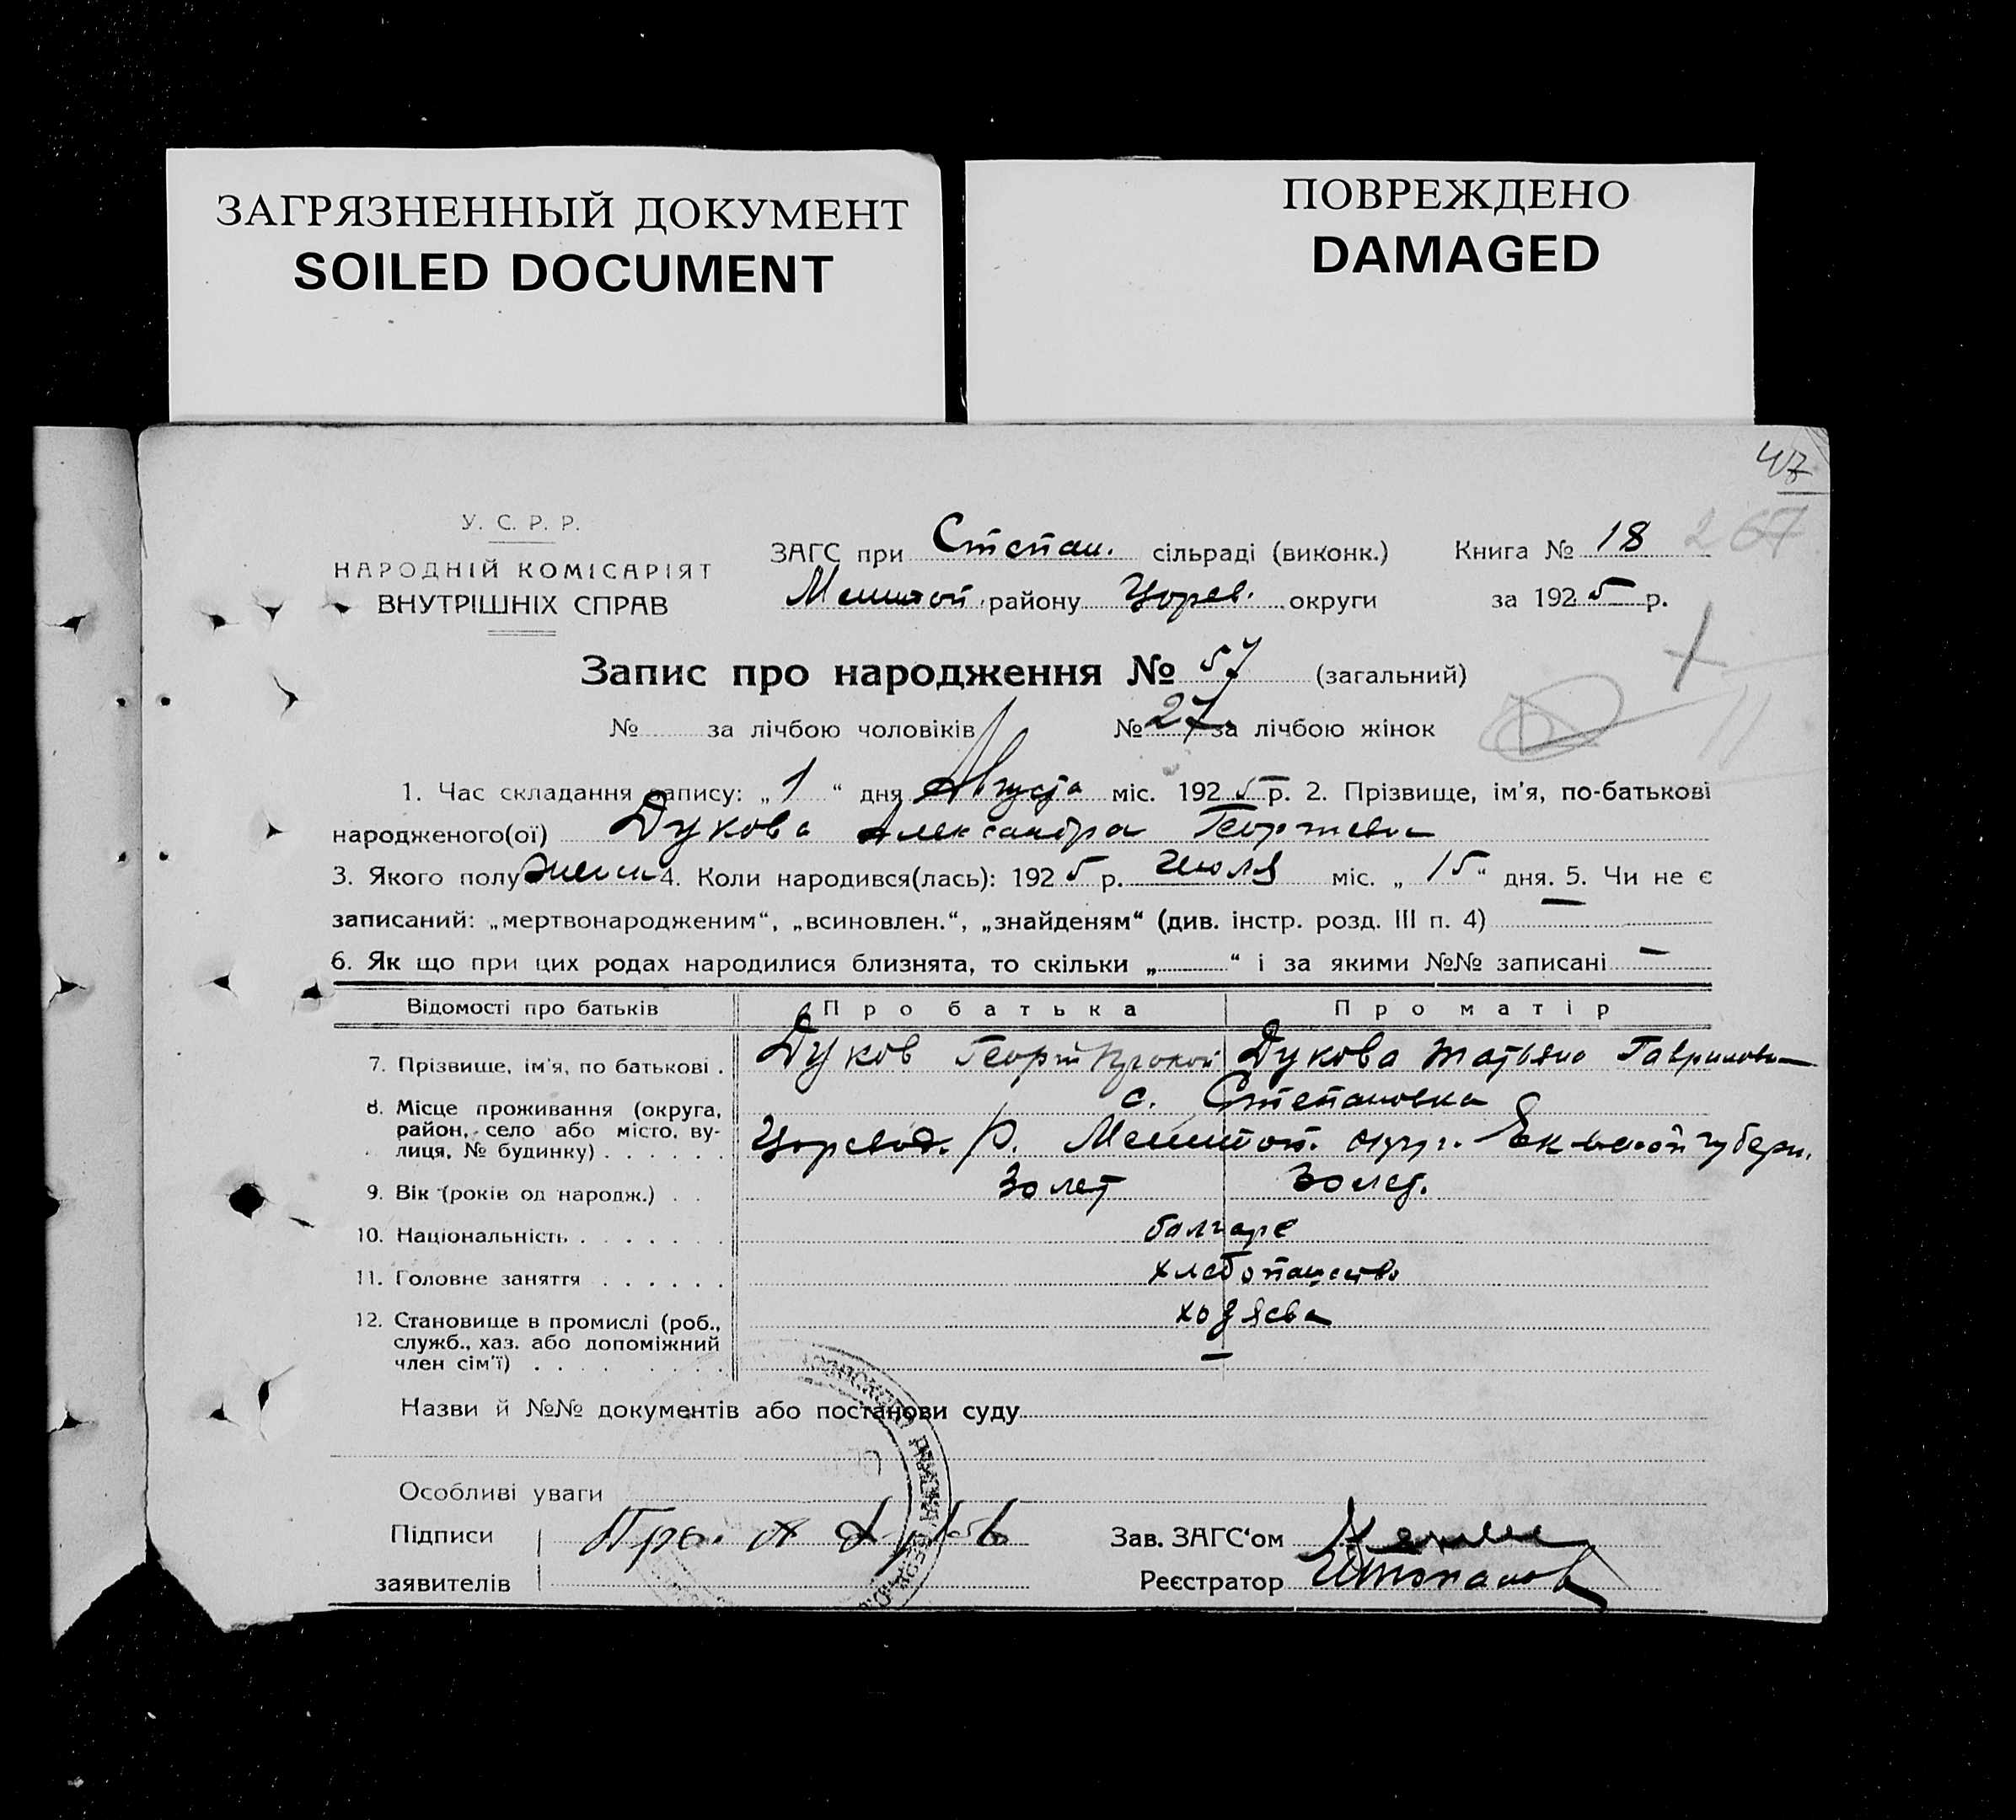 ЗАГРЯЗНЕННЫЙ ДОКУМЕНТ
SOILED DOCUMENT
ПОВРЕЖДЕНО
DAMAGED
47
267
У. С. Р. Р.
НАРОДНІЙ КОМІСАРІЯТ
ВНУТРІШНІХ СПРАВ
ЗАГС при Степан. сільраді (виконк.) Книга № 18
району Цорев. округи за 1925 р.
Запис про народження № 57 (загальний)
№ за лічбою чоловіків № 27 за лічбою жінок
1. Час складання запису: „1“ дня Августа міс. 1925 р. 2. Прізвище, ім'я, по-батькові
народженого(ої) Дукова Александра Георгиевна
3. Якого полу женск 4. Коли народився(лась): 1925 р. Июля міс. „15“ дня. 5. Чи не є
записаний: „мертвонародженим“, „всиновлен.“, „знайденям“ (див. інстр. розд. III п. 4) —
6. Як що при цих родах народилися близнята, то скільки „ “ і за якими №№ записані —
Відомості про батьків Про батька Про матір
7. Прізвище, ім'я, по батькові . Дуков Георгий Дукова Татьяна Гавриловна
8. Місце проживання (округа, район, село або місто, ву-лиця, № будинку) . . . . . . с. Степановка
р. округ. губерн.
9. Вік (років од народж.) . . 30 лет 30 лет.
10. Національність . . . . . . . болгаре
11. Головне заняття . . . . . . хлебопашество
12. Становище в промислі (роб., служб., хаз. або допоміжний член сім'ї) . . . . хозяева
—
Назви й №№ документів або постанови суду
Особливі уваги
Підписи
заявителів
Зав. ЗАГС'ом
Реєстратор